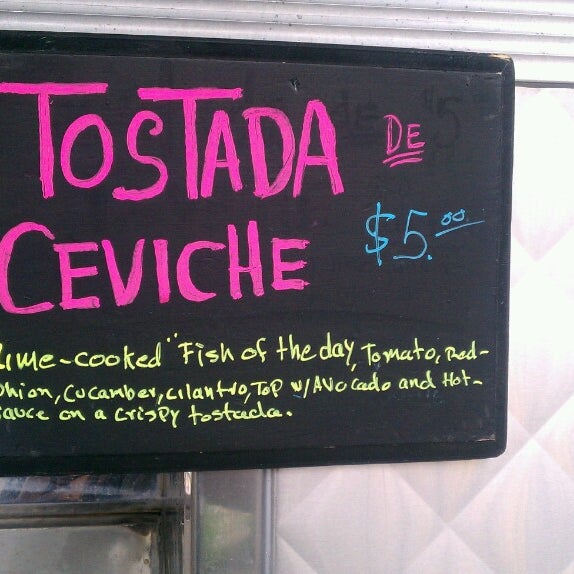 TOSTADA DE
CEVICHE $5.00
Lime-cooked" Fish of the day, Tomato, Red-
Onion, Cucamber, cilantro, ToP w/ Avocado and Hot-
sauce on a crisPy tostada.